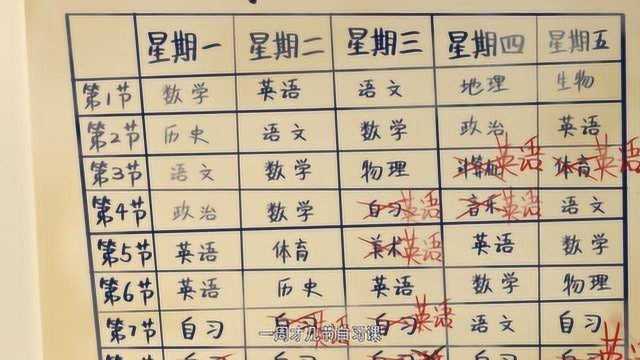 星期一 星期二 星期三 星期四 星期五
第1节 数学 英语 语文 地理 生物
第2节 历史 语文 数学 政治 英语
第3节 语文 数学 物理 英语 体育 英语
第4节 政治 数学 自习 英语 音乐 英语 语文
第5节 英语 体育 美术 英语 英语 数学
第6节 英语 历史 英语 数学 物理
第7节 自习 自习 英语 自习 英语 语文 自习
一周才几节自习课